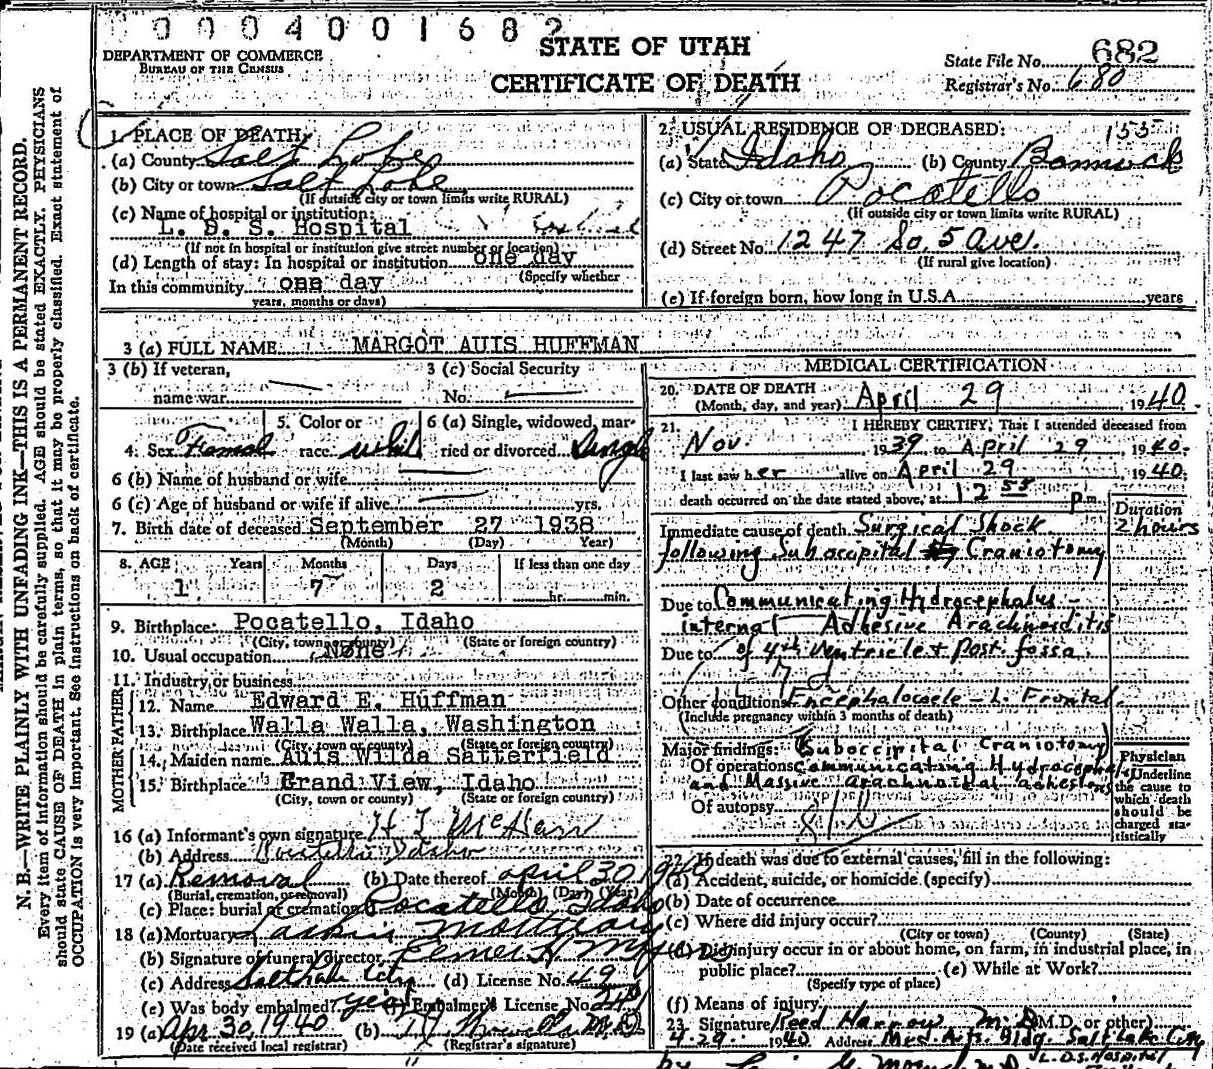 0004001682
DEPARTMENT OF COMMERCE
BUREAU OF THE CENSUS
STATE OF UTAH
CERTIFICATE OF DEATH
State File No. 682
Registrar's No. 680
N. B.—WRITE PLAINLY WITH UNFADING INK—THIS IS A PERMANENT RECORD.
Every item of information should be carefully supplied. AGE should be stated EXACTLY. PHYSICIANS
should state CAUSE OF DEATH in plain terms, so that it may be properly classified. Exact statement of
OCCUPATION is very important. See instructions on back of certificate.
1. PLACE OF DEATH:
(a) County Salt Lake
(b) City or town Salt Lake
(If outside city or town limits write RURAL)
(c) Name of hospital or institution:
L. D. S. Hospital
(If not in hospital or institution give street number or location)
(d) Length of stay: In hospital or institution one day
(Specify whether
In this community one day
years, months or days)
2. USUAL RESIDENCE OF DECEASED: 155
(a) State Idaho (b) County Bannock
(c) City or town Pocatello
(If outside city or town limits write RURAL)
(d) Street No. 1247 So. 5 Ave.
(If rural give location)
(e) If foreign born, how long in U.S.A. years
3 (a) FULL NAME MARGOT AUIS HUFFMAN
3 (b) If veteran, 3 (c) Social Security
name war No.
4. Sex Female 5. Color or race white 6 (a) Single, widowed, married or divorced Single
6 (b) Name of husband or wife
6 (c) Age of husband or wife if alive yrs.
7. Birth date of deceased September 27 1938
(Month) (Day) Year)
8. AGE Years Months Days If less than one day
1 7 2 hr. min.
9. Birthplace: Pocatello, Idaho
(City, town or county) (State or foreign country)
10. Usual occupation None
11. Industry or business
FATHER
12. Name Edward E. Huffman
13. Birthplace Walla Walla, Washington
(City, town or county) (State or foreign country)
MOTHER
14. Maiden name Auis Wilda Satterfield
15. Birthplace Grand View, Idaho
(City, town or county) (State or foreign country)
16 (a) Informant's own signature
(b) Address Pocatello Idaho
17 (a) Removal (b) Date thereof april 30 1940
(Burial, cremation, or removal) (Month) (Day) (Year)
(c) Place: burial or cremation Pocatello Idaho
18 (a) Mortuary Larkin Mortuary
(b) Signature of funeral director Elmer H
(c) Address Salt Lake City (d) License No. 49
(e) Was body embalmed? yes (f) Embalmer's License No.
19 (a) Apr 30, 1940 (b)
(Date received local registrar) (Registrar's signature)
MEDICAL CERTIFICATION
20. DATE OF DEATH
(Month, day, and year) April 29 1940.
21. I HEREBY CERTIFY, That I attended deceased from
Nov. 1939 to April 29 1940.
I last saw her alive on April 29 1940.
death occurred on the date stated above, at 12 55 p.m.
Duration
Immediate cause of death Surgical Shock 2 hours
following Subocciptal Craniotomy
Due to Communicating Hydrocephalus -
internal - Adhesive Arachnoiditis
Due to of 4th Ventricle + post. fossa.
Other conditions Encephalocele - L. Frontal.
(Include pregnancy within 3 months of death)
Major findings: (Suboccipital Craniotomy)
Of operations Communicating Hydrocephalus
and Massive arachnoidal adhesions
Of autopsy
Physician
Underline
the cause to
which death
should be
charged sta-
tistically
22. If death was due to external causes, fill in the following:
(a) Accident, suicide, or homicide (specify)
(b) Date of occurrence
(c) Where did injury occur?
(City or town) (County) (State)
(d) Did injury occur in or about home, on farm, in industrial place, in
public place? (e) While at Work?
(Specify type of place)
(f) Means of injury
23. Signature Reed Harrow M.D. (M.D. or other)
4-29- 1940 Address Med. Arts. Bldg. Salt Lake City
L.D.S. Hospital